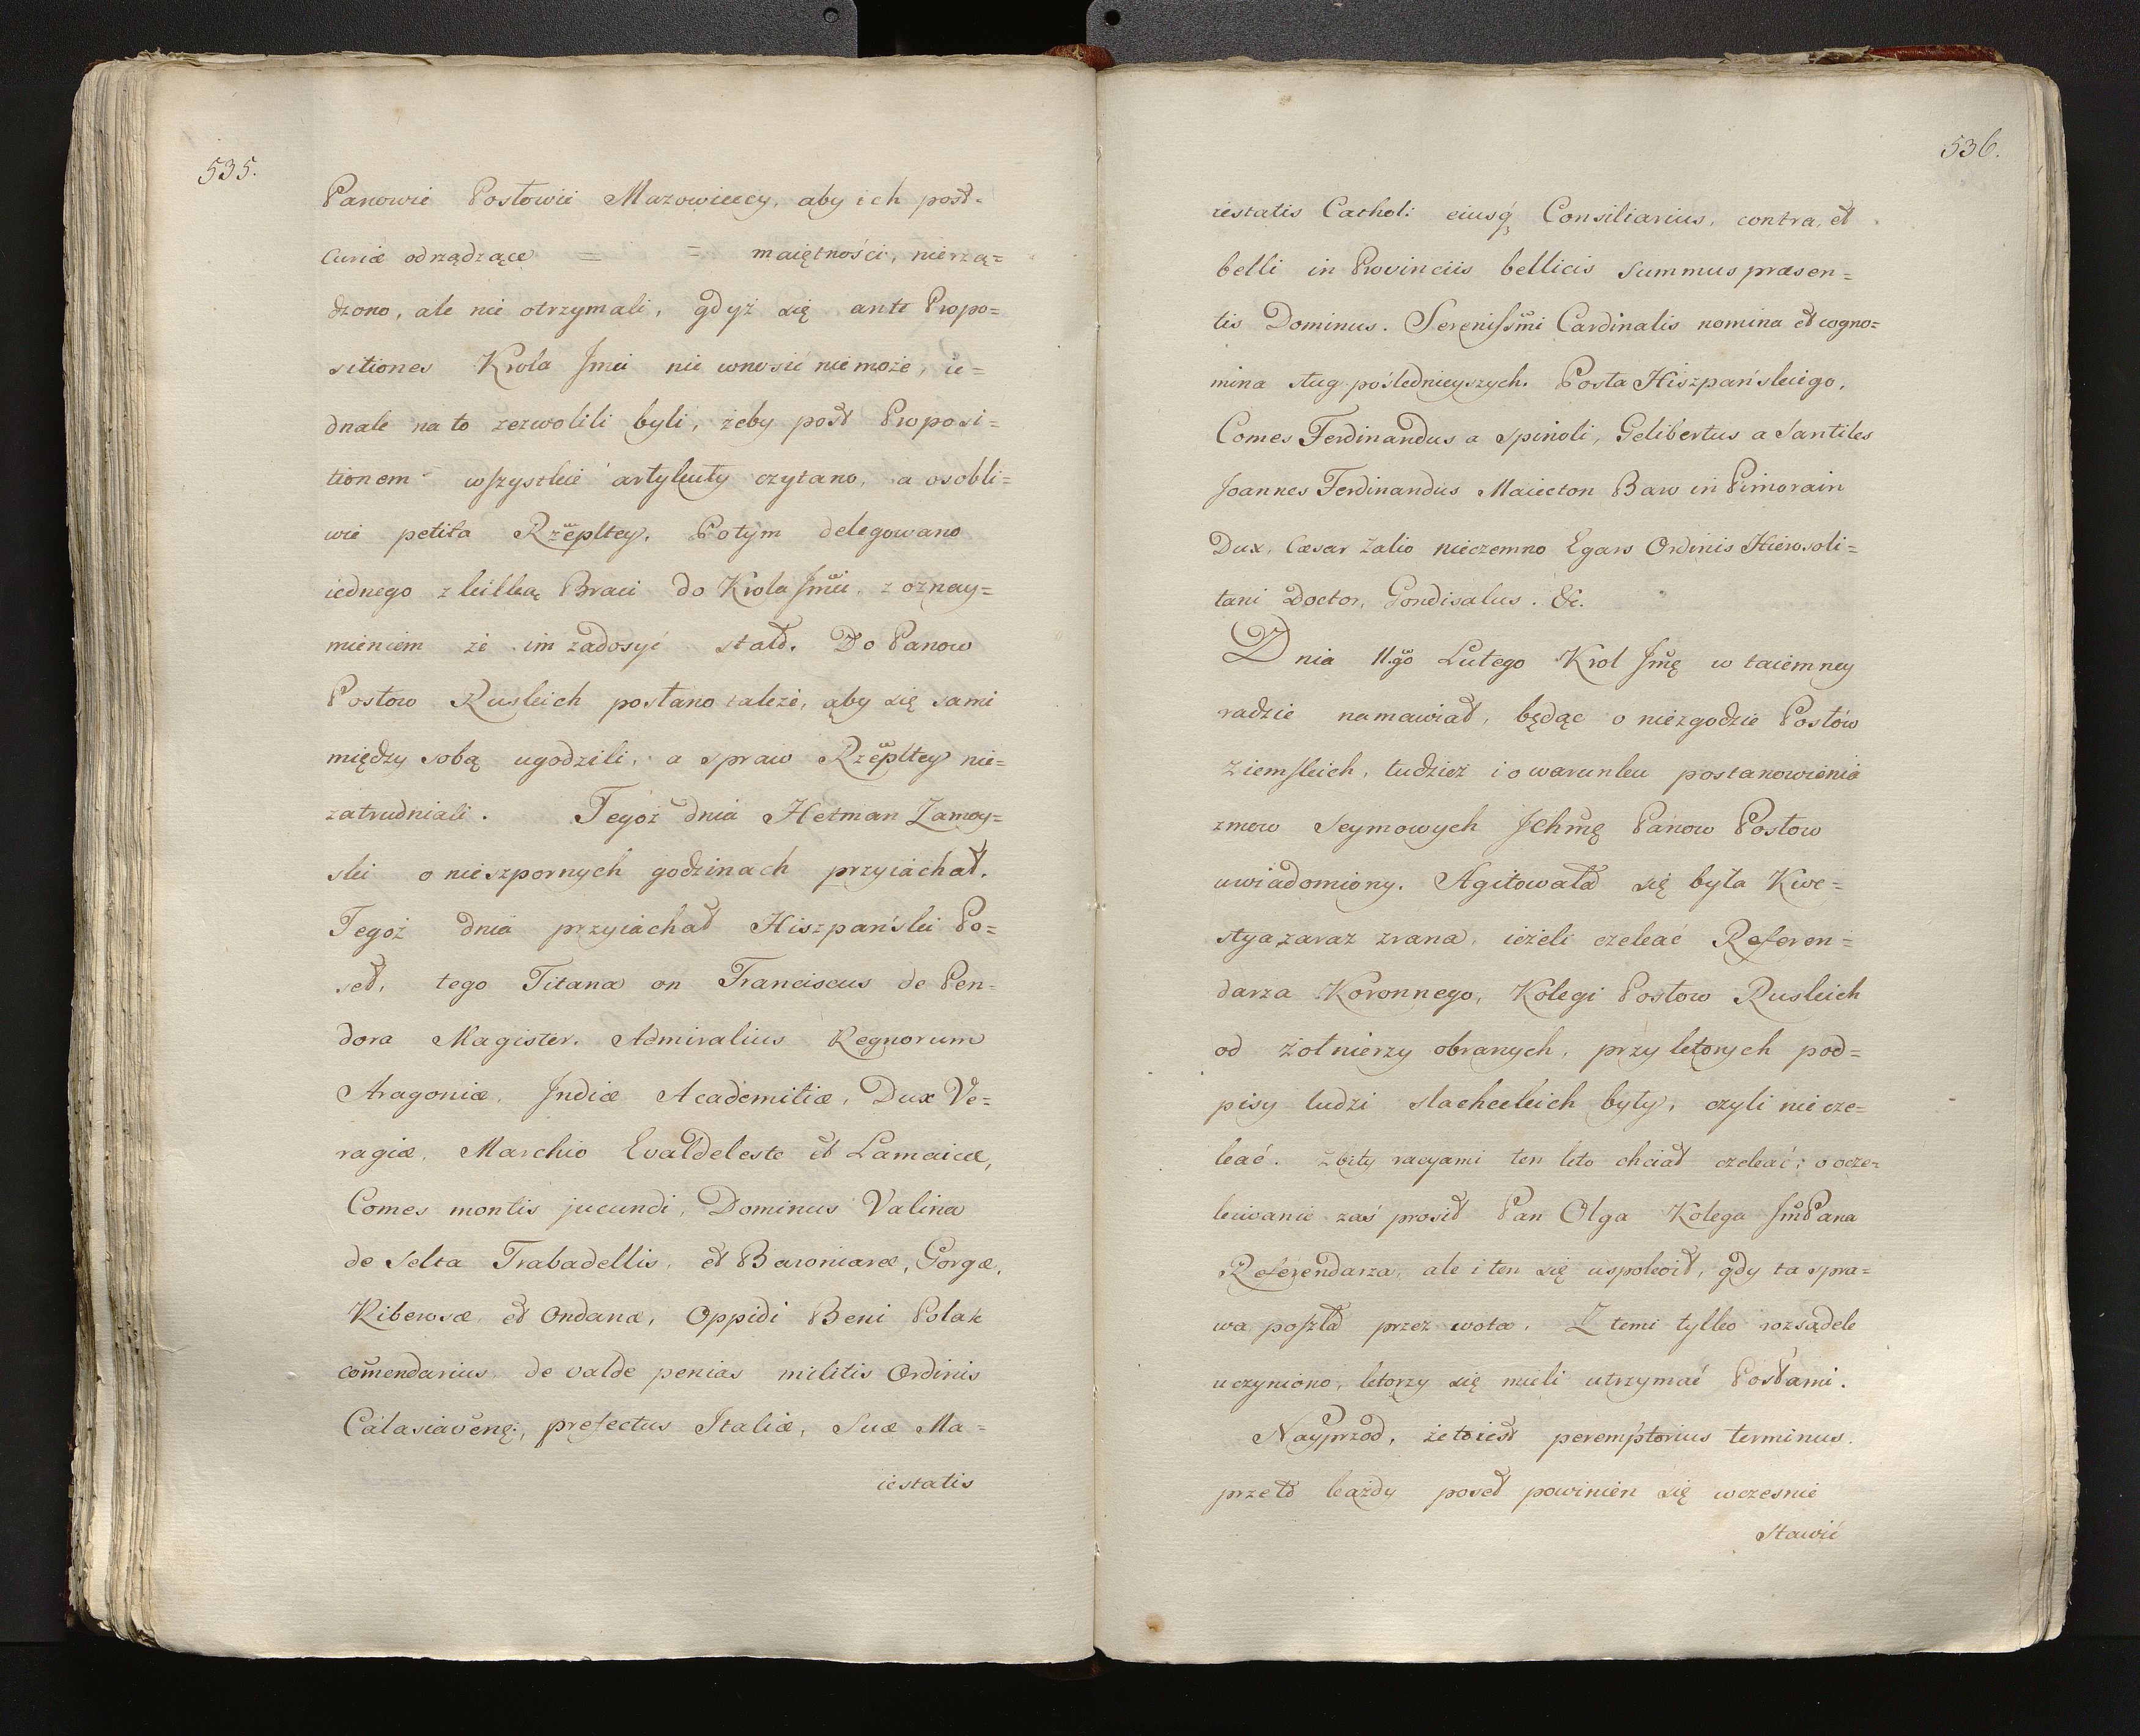 535.
Panowie Posłowie Mazowieccy, aby ich post-
curiæ odrządzące = = maiętności, nierzą=
dzono, ale nie otrzymali, gdyż się ante Propo=
sitiones Krola Jmci nie wnosić nie może, ie=
dnak na to zezwolili byli, żeby post Proposi=
tionem wszystkie artykuły czytano, a osobli=
wie petita Rzepltey. Potym delegowano
iednego z kilką Braci do Krola Jmci, z oznay=
mieniem że im zadosyć stało. Do Panow
Posłow Ruskich posłano także, aby się sami
między sobą ugodzili, a spraw Rzepltey nie=
zatrudniali. Tegoż dnia Hetman Zamoy=
ski o nieszpornych godzinach przyiachał.
Tegoż dnia przyiachał Hiszpański Po=
seł, tego Titana on Franciscus de Pen=
dora Magister. Admiralius Regnorum
Aragoniæ, Indiæ Academitiæ, Dux Ve=
ragiæ, Marchio Evaldeleste et Lamaicæ,
Comes montis jucundi, Dominus Valina
de Selta Trabadellis, et Baroniaræ, Gorgæ,
Riberosæ et Ondanæ, Oppidi Beni Polak
comendarius de valde penias militis Ordinis
Calasiavenę:, prefectus Italiæ, Suæ Ma=
iestatis
536.
iestatis Cathol: eiusq; Consiliarius, contra, et
belli in Provinciis bellicis Summus præsen=
tis Dominus. Serenissmi Cardinalis nomina et cogno=
mina sług poślednieyszych. Posła Hiszpańskiego,
Comes Ferdinandus a Spinoli, Gelibertus a Santiles
Joannes Ferdinandus Maiecton Baw in Pimorain
Dux, Cæsar Zalio nieczemno Egars Ordinis Hierosoli=
tani Doctor, Gondisalus. &c.
Dnia 11.go Lutego Krol Jmę w taiemney
radzie namawiał, będąc o niezgodzie Posłów
Ziemskich, tudzież i o warunku postanowienia
zmow Seymowych Jchmę Panow Posłow
uwiadomiony. Agitowała się była Kwe=
stya zaraz zrana, ieżeli czekać Referen=
darza Koronnego, Kolegi Posłow Ruskich
od żołnierzy obranych, przy ktorych pod=
pisy ludzi slacheckich były, czyli nie cze=
kać. Zbity racyami ten kto chciał czekać; o ocze=
kiwanie zaś prosił Pan Olga Kolega JmPana
Referendarza, ale i ten się uspokoił, gdy ta spra=
wa poszła przez wota. Z temi tylko rozsądek
uczyniono, ktorzy się mieli utrzymać Posłami.
Nayprzod, że to iest peremptorius terminus.
przeto każdy poseł powinien się wczesnie
Stawić